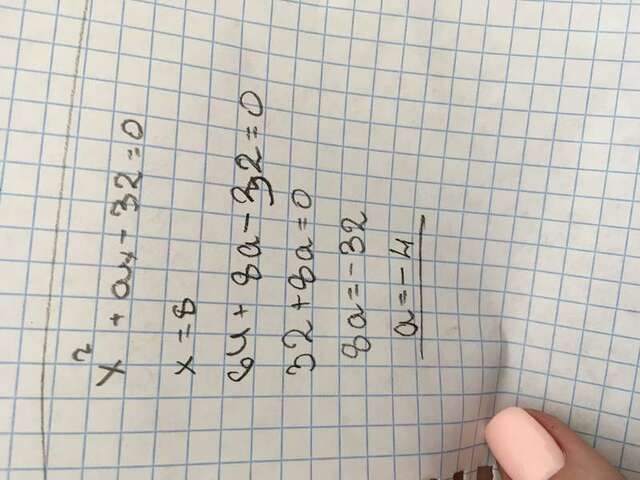 x² + ax - 32 = 0
x = 8
64 + 8a - 32 = 0
32 + 8a = 0
8a = -32
a = -4